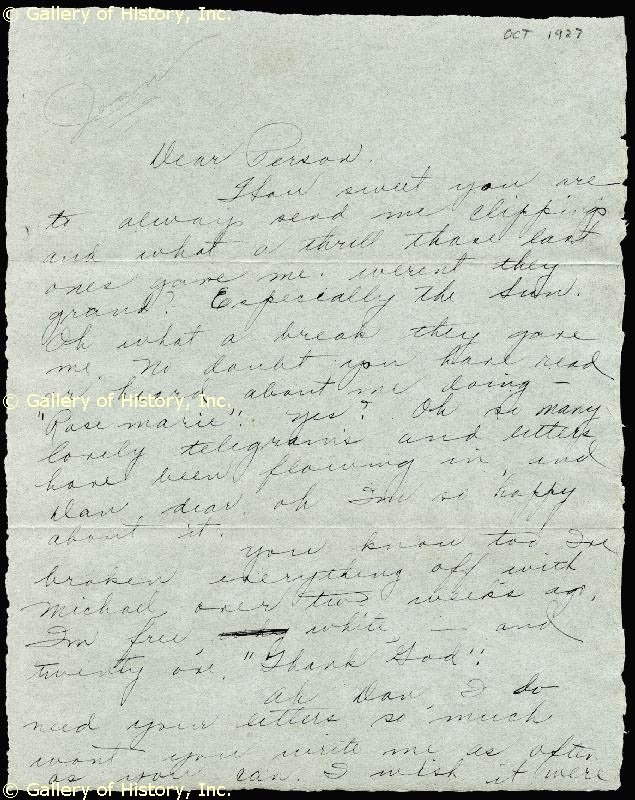 © Gallery of History, Inc.
OCT 1927
Joan
Dear Person.
How sweet you are
to always send me clippings
and what a thrill those last
ones gave me. werent they
grand? Especially the Sun.
Oh what a break they gave
me. No doubt you have read
or heard about me doing —
"Rose marie". yes? Oh so many
lovely telegrams and letters
have been flowing in, and
Dan, dear, oh I'm so happy
about it.
You know too I've
broken everything off with
Michael over two weeks ago,
I'm free, white, — and
twenty one. "Thank God"!
Ah Dan, I do
need your letters so much
wont you write me as often
as you can. I wish it were
© Gallery of History, Inc.
© Gallery of History, Inc.
© Gallery of History, Inc.
© Gallery of History, Inc.